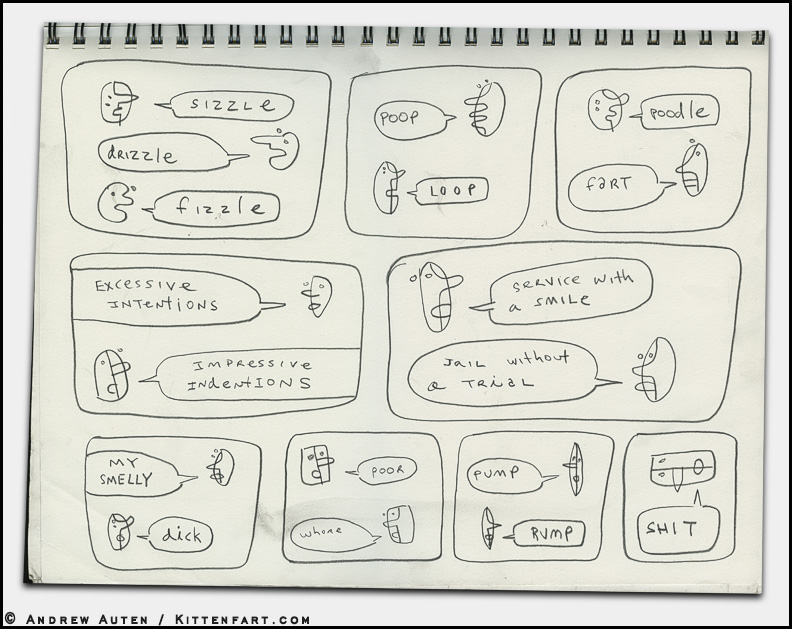 SIZZLE
DRIZZLE
FIZZLE
POOP
LOOP
POODLE
FART
EXCESSIVE
INTENTIONS
IMPRESSIVE
INDENTIONS
SERVICE WITH
A SMILE
JAIL WITHOUT
A TRIAL
MY
SMELLY
DICK
POOR
WHORE
PUMP
RUMP
SHIT
© ANDREW AUTEN / KITTENFART.COM